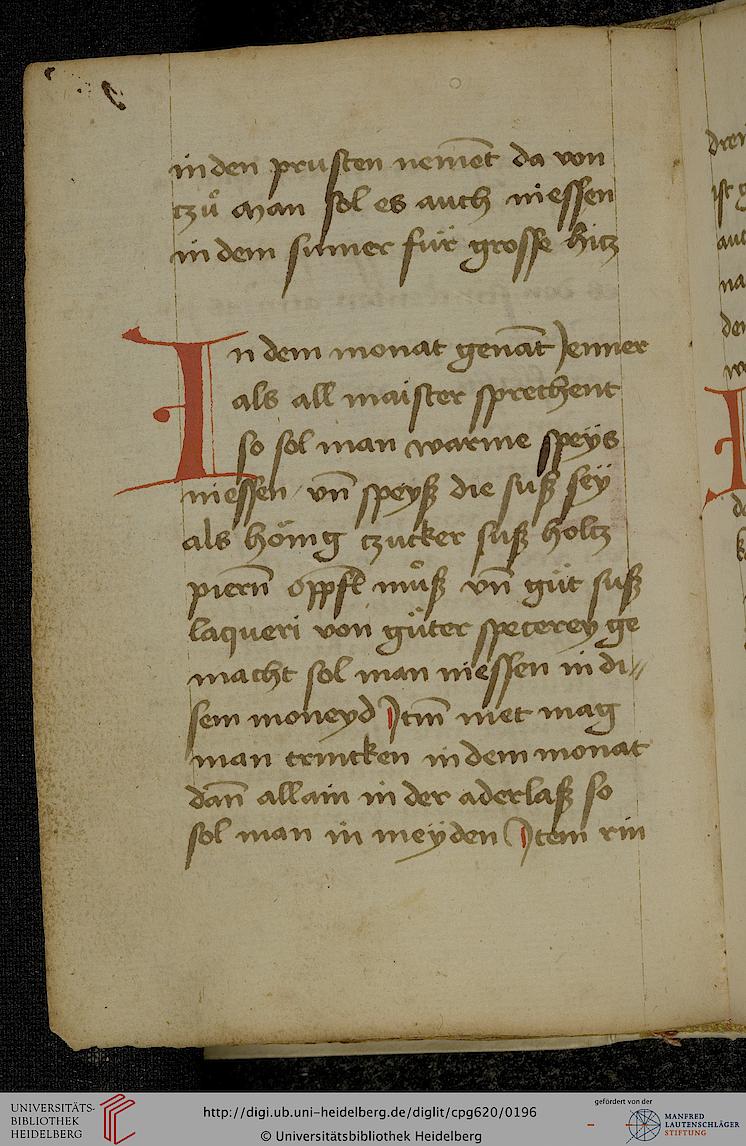 in den prusten nemēt da von
tzuͦ Man sol es auch niessen
in dem sumer für grosse hitz
In dem monat genāt Jenner
als all maister sprechent
so sol man warme speÿs
niessen vn̄ speyß die suß seÿ
als hönig tzucker suß holtz
piern̄ öppfl muͦß vn̄ güt suß
laqueri von güter specerey ge
macht sol man niessen in di⸗
sem moneyd Jtm̄ met mag
man trincken in dem monat
dan̄ allain in der aderlaß so
sol man in meÿden Jtem rin
UNIVERSITÄTS-
BIBLIOTHEK
HEIDELBERG
http://digi.ub.uni-heidelberg.de/diglit/cpg620/0196
© Universitätsbibliothek Heidelberg
gefördert von der
MANFRED
LAUTENSCHLÄGER
STIFTUNG